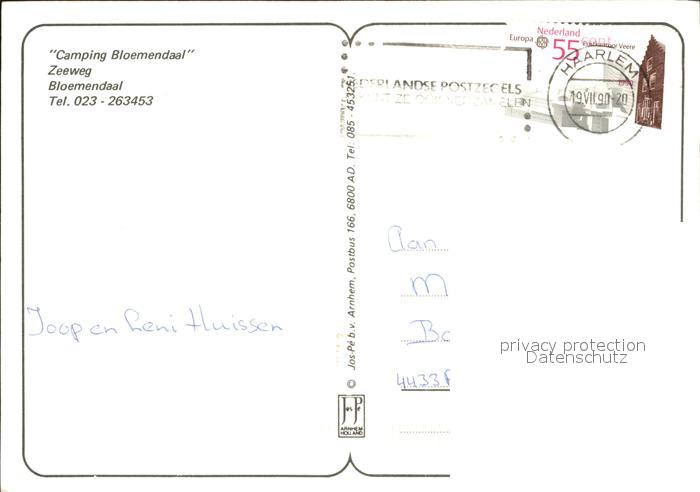 "Camping Bloemendaal"
Zeeweg
Bloemendaal
Tel. 023 - 263453
Joop en Leni Huissen
© Jos-Pé b.v. Arnhem, Postbus 166, 6800 AD. Tel: 085 - 453251.
Jos Pé
ARNHEM
HOLLAND
DERLANDSE POSTZEGELS
Nederland
Europa 55 cent
Postkantoor Veere
1990
HAARLEM
19.VII.90-20
Aan
M
Bo
4433
privacy protection
Datenschutz